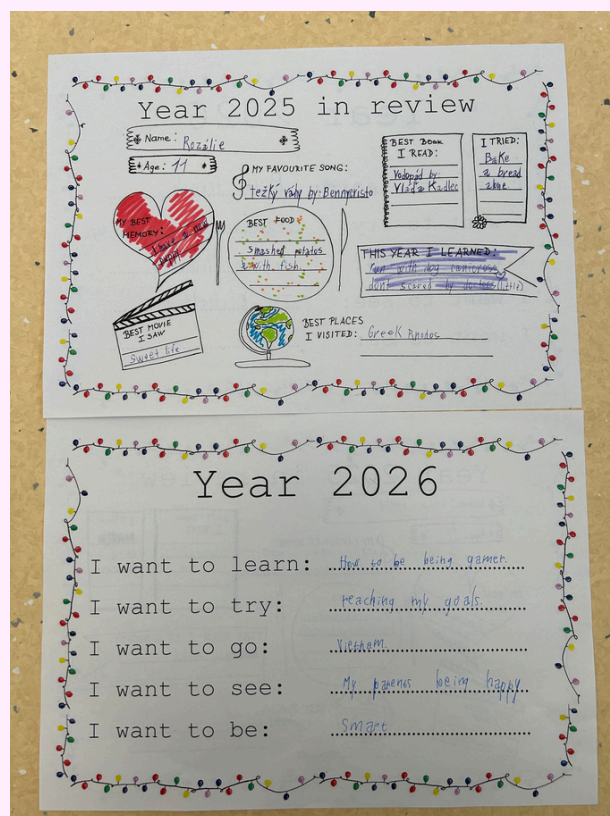 Year 2025 in review
Name: Rozálie
Age: 11
MY FAVOURITE SONG:
težký váhy by: Bennycristo
BEST BOOK
I READ:
Vodopád by
Vlaďa Kadlec
I TRIED:
Bake
a bread
alone
MY BEST
MEMORY:
I have a new
puppy
BEST FOOD:
smashed potatos
with fish.
THIS YEAR I LEARNED:
run with dog canicross
dont scared by
BEST MOVIE
I SAW
Sweet life
BEST PLACES
I VISITED: Greek Rhodos
Year 2026
I want to learn: How to be being gamer.
I want to try: reaching my goals.
I want to go: Vietnam.
I want to see: My parents being happy
I want to be: Smart